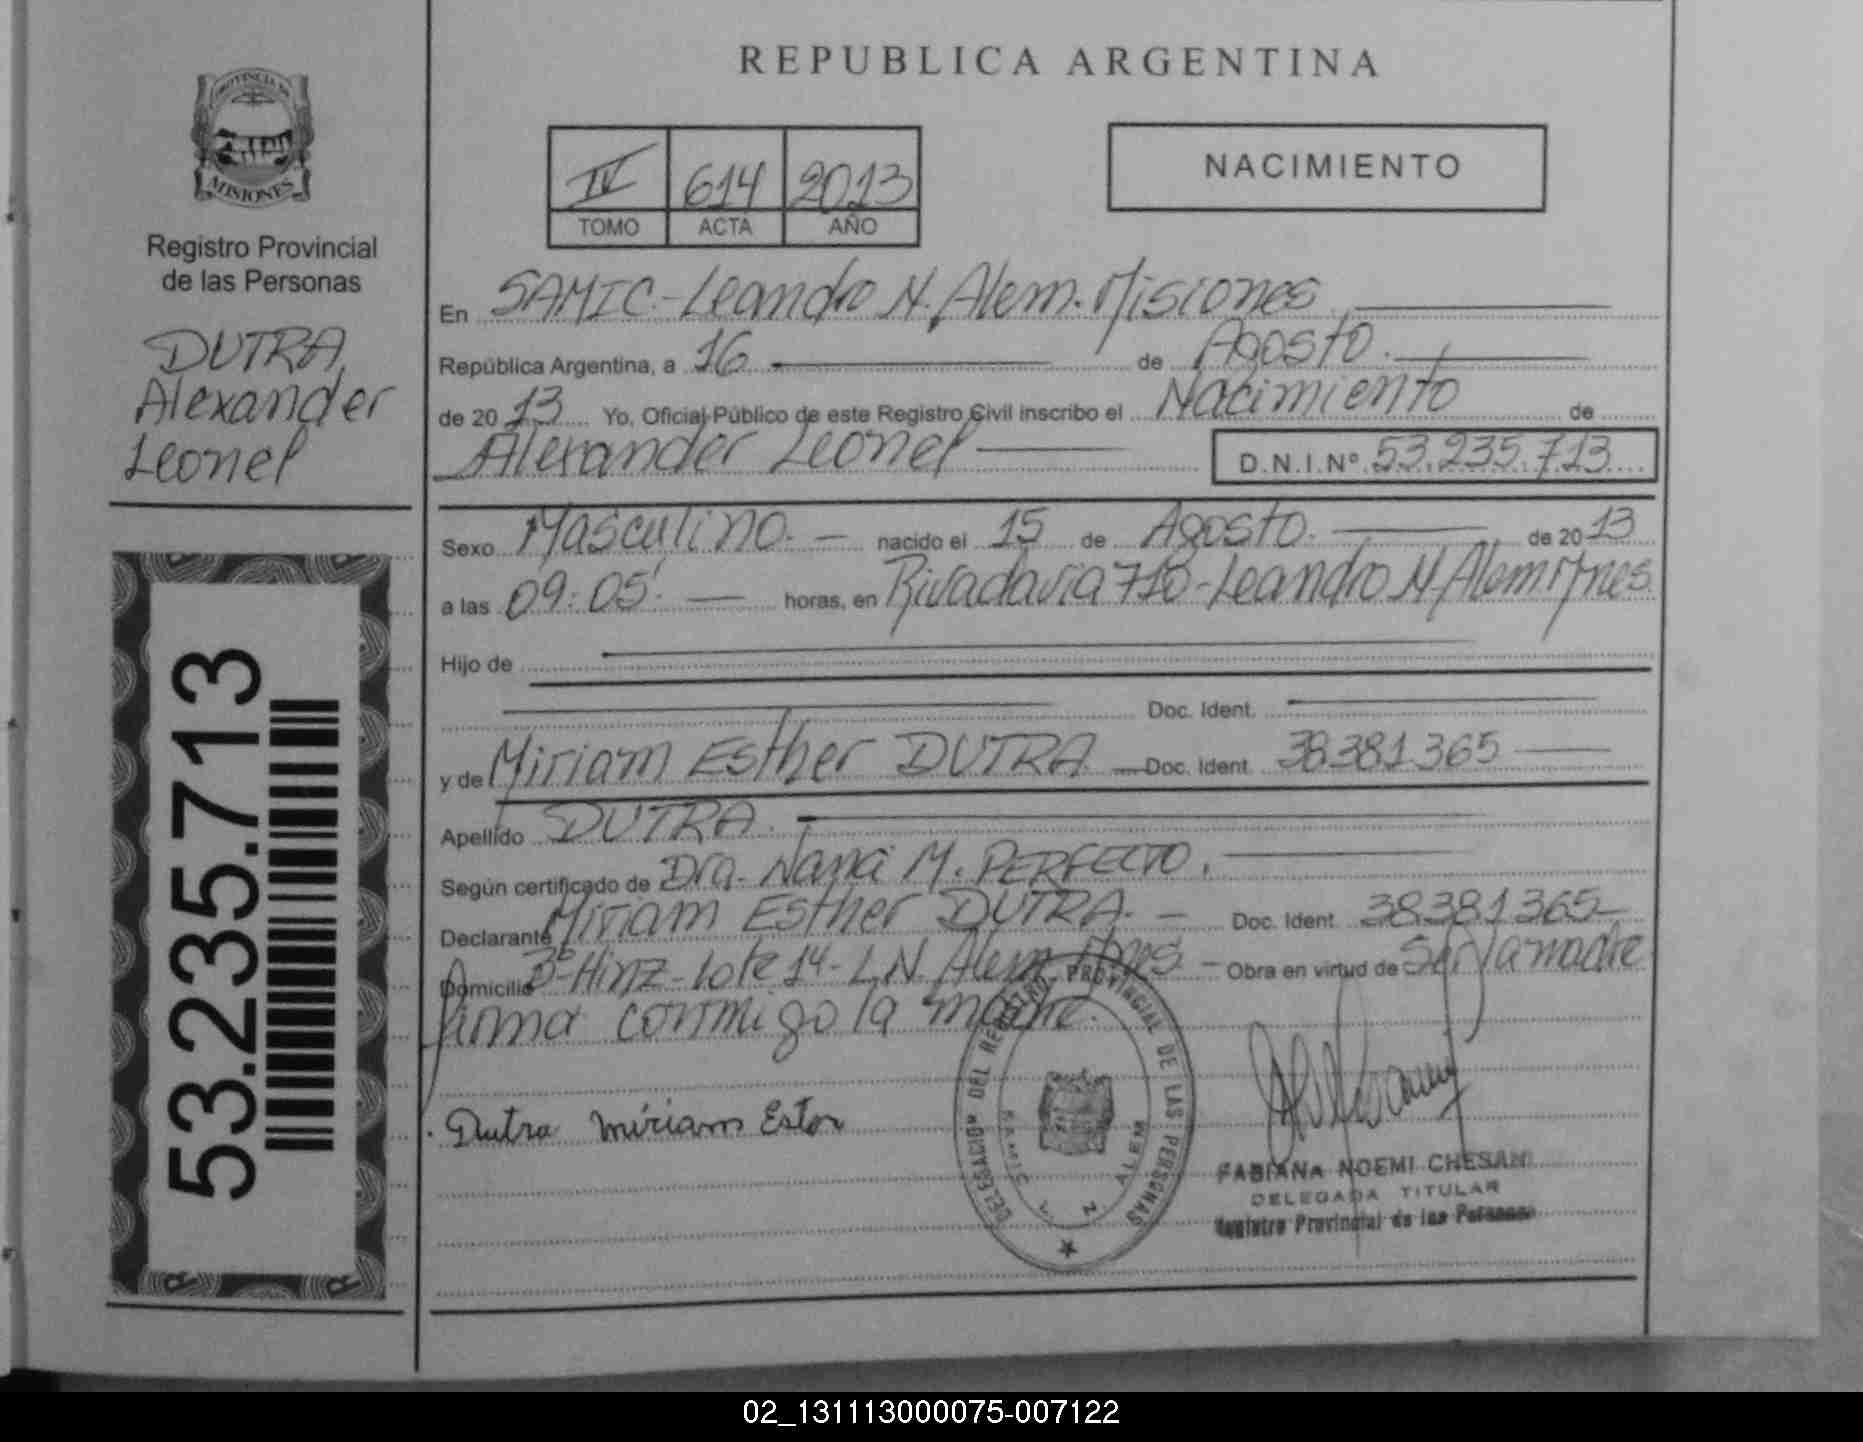 REPUBLICA ARGENTINA
PROVINCIA DE
MISIONES
Registro Provincial
de las Personas
DUTRA,
Alexander
Leonel
53.235.713
IV 614 2013
TOMO ACTA AÑO
NACIMIENTO
En SAMIC-Leandro N. Alem-Misiones
República Argentina, a 16 de Agosto.
de 2013 Yo, Oficial Público de este Registro Civil inscribo el Nacimiento de
Alexander Leonel D.N.I.Nº 53.235.713
Sexo Masculino. nacido el 15 de Agosto. de 2013
a las 09:05' horas, en Rivadavia 710-Leandro N. Alem Mnes.
Hijo de
Doc. Ident.
y de Miriam Esther DUTRA Doc. Ident. 38381365
Apellido DUTRA.
Según certificado de Dra. M. PERFECTO.
Declarante Miriam Esther DUTRA. Doc. Ident. 38381365
Domicilio Bº Hinz-Lote 14-L.N. Alem Mnes. Obra en virtud de Ser la madre
firma conmigo la madre.
Dutra Miriam Ester
DELEGACION DEL REGISTRO PROVINCIAL DE LAS PERSONAS
SAMIC L N ALEM
FABIANA NOEMI CHESANI
DELEGADA TITULAR
Registro Provincial de las Personas
02_131113000075-007122